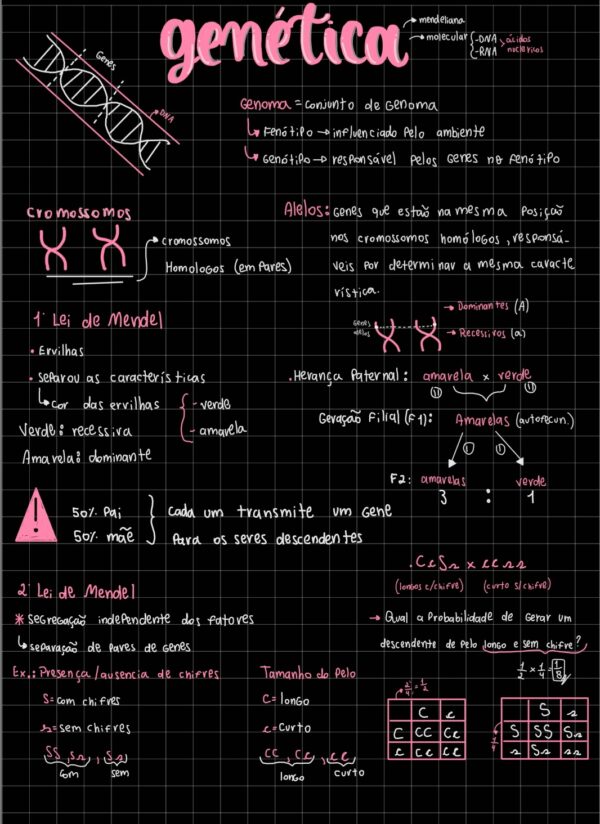 genética
→ mendeliana
→ molecular { -DNA → ácidos
-RNA nucleicos
Genes
→ DNA
Genoma = conjunto de Genoma
↳ Fenótipo → influenciado pelo ambiente
↳ Genótipo → responsável pelos Genes no fenótipo
cromossomos
→ cromossomos
Homologos (em Pares)
Alelos: Genes que estão na mesma posição
nos cromossomos homólogos, responsá-
veis por determinar a mesma caracte
rística.
Genes
alelos
→ Dominantes (A)
→ Recessivos (a)
1ª Lei de Mendel
• Ervilhas
• separou as características
↳ cor das ervilhas { - verde
- amarela
Verde: recessiva
Amarela: dominante
. Herança Paternal: amarela x verde
Geração Filial (F1): Amarelas (autofecun.)
F2: amarelas verde
3 : 1
50% Pai
50% mãe
Cada um transmite um Gene
Para os seres descendentes
2ª Lei de Mendel
* Segregação independente dos fatores
↳ separação de pares de Genes
Ex.: Presença/ausencia de chifres
S = com chifres
s = sem chifres
SS, Ss, Ss
com sem
Tamanho do Pelo
C = longo
c = curto
CC, Cc, cc
longo curto
. CcSs x ccss
(longos c/chifre) (curto s/chifre)
→ Qual a Probabilidade de Gerar um
descendente de Pelo longo e sem chifre?
1/2 x 1/4 = 1/8
2/4 = 1/2
C c
C CC Cc
c cc Cc
S s
S SS Ss
s Ss ss
1/4